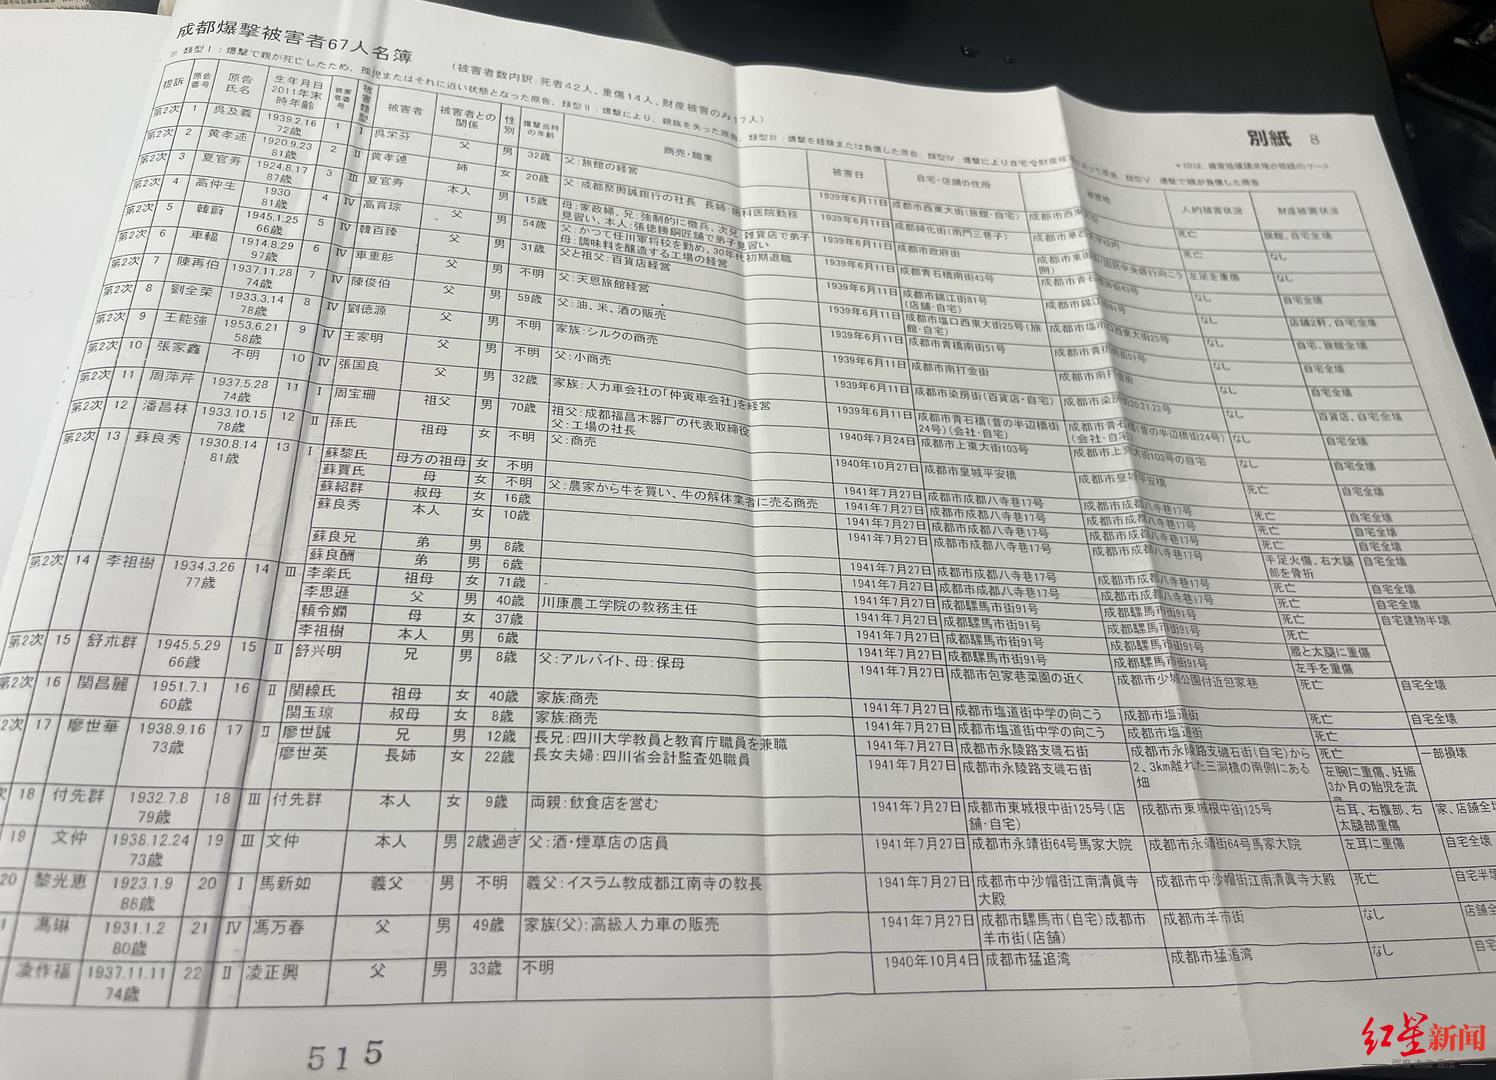 成都爆擊被害者67人名簿
(被害者数内訳:死者42人、重傷14人、財産被害のみ17人)
別紙 8
※ 類型Ⅰ:爆撃で親が死亡したため、孤児またはそれに近い状態となった原告、類型Ⅱ:爆撃により、親族を失った原告、類型Ⅲ:爆撃を経験または負傷した原告、類型Ⅳ:爆撃により自宅や財産被
提訴 原告番号 原告氏名 生年月日 2011年末時年齢 被害者番号 被害類型 被害者 被害者との関係 性別 爆撃当時の年齢 商売・職業 被害日 自宅・店舗の住所 被害地 人的被害状況 財産被害状況
第2次 1 呉及義 1939.2.16 72歳 1 Ⅰ 呉栄芬 父 男 32歳 父:旅館の経営 1939年6月11日 成都市西東大街(旅館・自宅) 死亡 旅館、自宅全壊
第2次 2 黄孝逑 1920.9.23 81歳 2 Ⅱ 黄孝逑 姉 女 20歳 父:成都聚興誠銀行の社長 1939年6月11日 成都純化街(南門三巷子) 死亡 なし
第2次 3 夏官寿 1924.8.17 87歳 3 Ⅲ 夏官寿 本人 男 15歳 1939年6月11日 成都市政府街 左足を重傷 なし
第2次 4 高仲生 1930 81歳 4 Ⅳ 高育琮 父 男 54歳 1939年6月11日 成都青石橋南街43号 なし 自宅全壊
第2次 5 韓蔚 1945.1.25 66歳 5 Ⅳ 韓百臻 父 男 31歳 父と祖父:百貨店経営 1939年6月11日 成都市錦江街81号(店舗・自宅) なし 店舗2軒、自宅全壊
第2次 6 車輻 1914.8.29 97歳 6 Ⅳ 車重肜 父 男 不明 父:天恩旅館経営 1939年6月11日 成都市塩口西東大街25号(旅館・自宅) なし 自宅、旅館全壊
第2次 7 陳再伯 1937.11.28 74歳 7 Ⅳ 陳俊伯 父 男 59歳 父:油、米、酒の販売 1939年6月11日 成都市青橋南街51号 なし 自宅全壊
第2次 8 劉全荣 1933.3.14 78歳 8 Ⅳ 劉徳源 父 男 不明 家族:シルクの商売 1939年6月11日 成都市南打金街 なし 自宅全壊
第2次 9 王能強 1953.6.21 58歳 9 Ⅳ 王家明 父 男 不明 父:小商売 1939年6月11日 成都市染房街(百貨店・自宅) なし 百貨店、自宅全壊
第2次 10 張家鑫 不明 10 Ⅳ 張国良 父 男 32歳 家族:人力車会社の「仲寅車会社」を経営 1939年6月11日 成都市青石橋(昔の半辺橋街24号)(会社・自宅) なし 自宅全壊
第2次 11 周萍芹 1937.5.28 74歳 11 Ⅰ 周宝珊 祖父 男 70歳 祖父:成都福昌木器厂の代表取締役 父:工場の社長 1940年7月24日 成都市上東大街103号 なし 自宅全壊
第2次 12 潘昌林 1933.10.15 78歳 12 Ⅱ 孫氏 祖母 女 不明 父:商売 1940年10月27日 成都市皇城平安橋 死亡 自宅全壊
第2次 13 蘇良秀 1930.8.14 81歳 13 Ⅰ 蘇黎氏 母方の祖母 女 不明 父:農家から牛を買い、牛の解体業者に売る商売 1941年7月27日 成都市成都八寺巷17号 成都市成都八寺巷17号 死亡 自宅全壊
蘇賈氏 母 女 不明 1941年7月27日 成都市成都八寺巷17号 成都市成都八寺巷17号 死亡 自宅全壊
蘇紹群 叔母 女 16歳 1941年7月27日 成都市成都八寺巷17号 成都市成都八寺巷17号 死亡 自宅全壊
蘇良秀 本人 女 10歳 1941年7月27日 成都市成都八寺巷17号 成都市成都八寺巷17号 手足火傷、右大腿部を骨折 自宅全壊
蘇良兄 弟 男 8歳 1941年7月27日 成都市成都八寺巷17号 成都市成都八寺巷17号 死亡 自宅全壊
蘇良酬 弟 男 6歳 1941年7月27日 成都市成都八寺巷17号 成都市成都八寺巷17号 死亡 自宅全壊
第2次 14 李祖樹 1934.3.26 77歳 14 Ⅲ 李楽氏 祖母 女 71歳 1941年7月27日 成都騾馬市街91号 成都騾馬市街91号 死亡 自宅建物半壊
李思遜 父 男 40歳 川康農工学院の教務主任 1941年7月27日 成都騾馬市街91号 成都騾馬市街91号 死亡
頼令嫻 母 女 37歳 1941年7月27日 成都騾馬市街91号 成都騾馬市街91号 腰と太腿に重傷
李祖樹 本人 男 6歳 1941年7月27日 成都騾馬市街91号 成都騾馬市街91号 左手を重傷
第2次 15 舒朮群 1945.5.29 66歳 15 Ⅱ 舒兴明 兄 男 8歳 父:アルバイト、母:保母 1941年7月27日 成都市包家巷菜園の近く 成都市少城公園付近包家巷 死亡 自宅全壊
第2次 16 関昌麗 1951.7.1 60歳 16 Ⅱ 関線氏 祖母 女 40歳 家族:商売 1941年7月27日 成都市塩道街中学の向こう 成都市塩道街 死亡 自宅全壊
関玉琼 叔母 女 8歳 家族:商売 1941年7月27日 成都市塩道街中学の向こう 成都市塩道街 死亡
2次 17 廖世華 1938.9.16 73歳 17 Ⅱ 廖世誠 兄 男 12歳 長兄:四川大学教員と教育庁職員を兼職 1941年7月27日 成都市永陵路支磯石街 成都市永陵路支磯石街(自宅)から2、3km離れた三洞橋の南側にある畑 死亡 一部損壊
廖世英 長姉 女 22歳 長女夫婦:四川省会計監査処職員 1941年7月27日 成都市永陵路支磯石街 左腕に重傷、妊娠3か月の胎児を流
次 18 付先群 1932.7.8 79歳 18 Ⅲ 付先群 本人 女 9歳 両親:飲食店を営む 1941年7月27日 成都市東城根中街125号(店舗・自宅) 成都市東城根中街125号 右耳、右腹部、右太腿部重傷 家、店舗全壊
19 文仲 1938.12.24 73歳 19 Ⅲ 文仲 本人 男 2歳過ぎ 父:酒・煙草店の店員 1941年7月27日 成都市永靖街64号馬家大院 成都市永靖街64号馬家大院 左耳に重傷 自宅全壊
20 黎光恵 1923.1.9 88歳 20 Ⅰ 馬新如 義父 男 不明 義父:イスラム教成都江南寺の教長 1941年7月27日 成都市中沙帽街江南清眞寺大殿 成都市中沙帽街江南清眞寺大殿 死亡 自宅半壊
1 馮琳 1931.1.2 80歳 21 Ⅳ 馮万春 父 男 49歳 家族(父):高級人力車の販売 1941年7月27日 成都市騾馬市(自宅)成都市羊市街(店舗) 成都市羊市街 なし 店舗全
凌作福 1937.11.11 74歳 22 Ⅱ 凌正興 父 男 33歳 不明 1940年10月4日 成都市猛追湾 成都市猛追湾 なし 自宅
515
红星新闻
深度 态度 温度